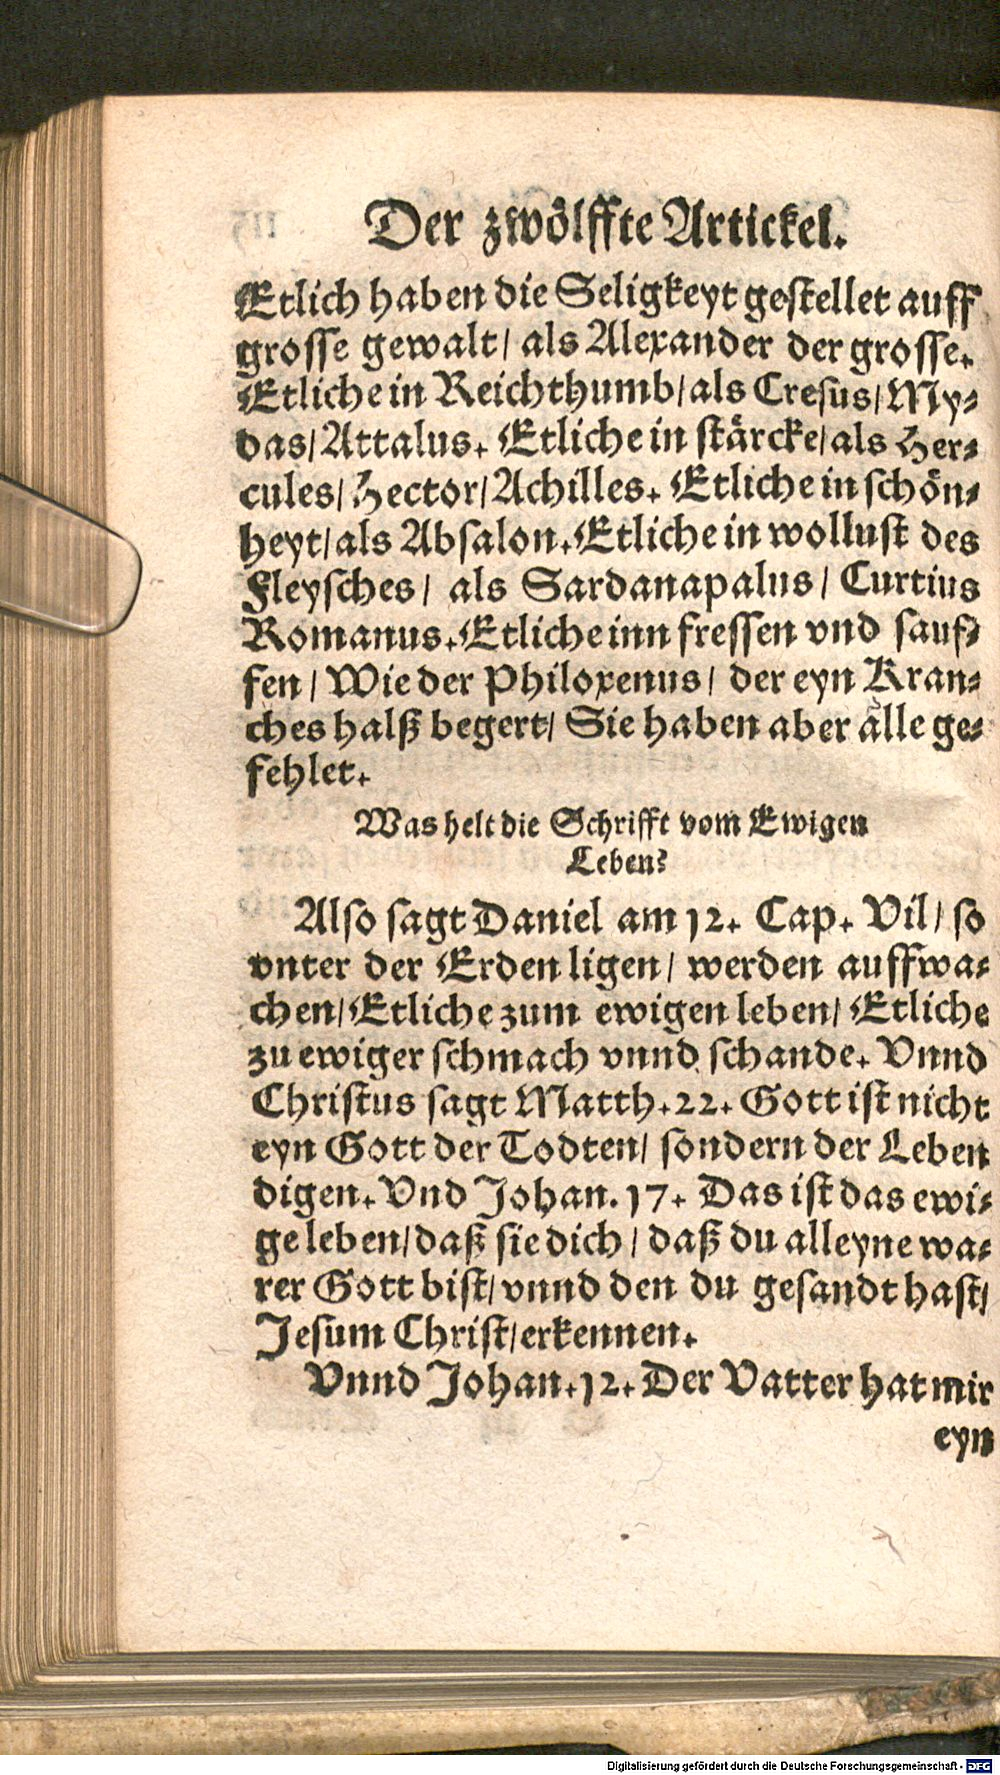 Der zwölffte Artickel.
Etlich haben die Seligkeyt gestellet auff
grosse gewalt/ als Alexander der grosse.
Etliche in Reichthumb/ als Cresus/ My⸗
das/ Attalus. Etliche in stärcke/ als Her⸗
cules/ Hector/ Achilles. Etliche in schön⸗
heyt/ als Absalon. Etliche in wollust des
Fleysches/ als Sardanapalus/ Curtius
Romanus. Etliche inn fressen vnd sauf⸗
fen/ Wie der Philoxenus/ der eyn Kran⸗
ches halß begert/ Sie haben aber alle ge⸗
fehlet.
Was helt die Schrifft vom Ewigen
Leben?
Also sagt Daniel am 12. Cap. Vil/ so
vnter der Erden ligen/ werden auffwa⸗
chen/ Etliche zum ewigen leben/ Etliche
zu ewiger schmach vnnd schande. Vnnd
Christus sagt Matth. 22. Gott ist nicht
eyn Gott der Todten/ sondern der Leben
digen. Vnd Johan. 17. Das ist das ewi⸗
ge leben/ daß sie dich/ daß du alleyne wa⸗
rer Gott bist/ vnnd den du gesandt hast/
Jesum Christ/ erkennen.
Vnnd Johan. 12. Der Vatter hat mir
eyn
Digitalisierung gefördert durch die Deutsche Forschungsgemeinschaft - DFG